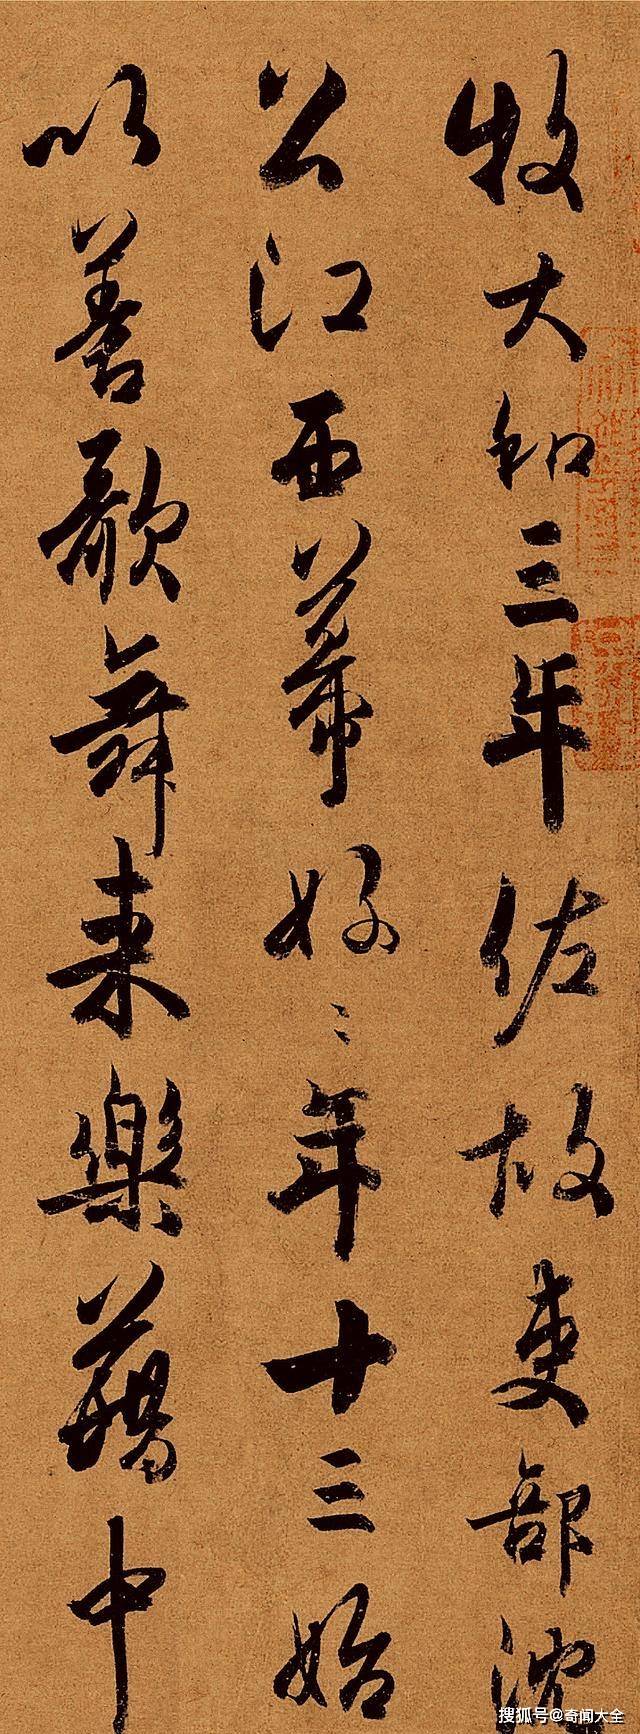 牧大和三年佐故吏部沈
公江西幕好〻年十三始
以善歌舞来樂籍中
搜狐号@奇闻大全